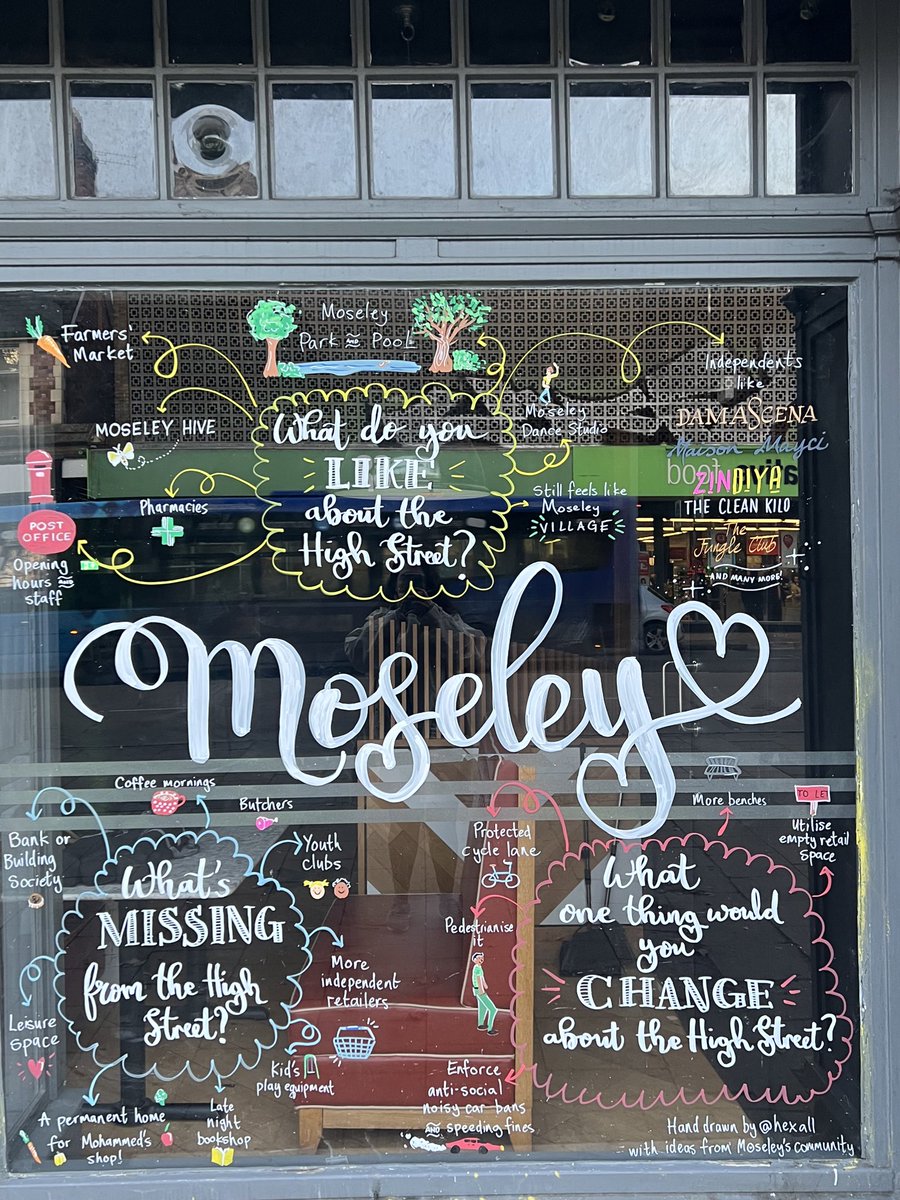 Moseley
Park AND Pool
Farmers'
Market
Independents
like
DAMASCENA
Maison Mayci
ZINDIYA
THE CLEAN KILO
The
Jungle Club
AND MANY MORE!
Moseley
Dance Studio
MOSELEY HIVE
What do you
LIKE
about the
High Street?
Pharmacies
Still feels like
Moseley
VILLAGE
POST
OFFICE
Opening
hours AND
staff
Moseley
Coffee mornings
Butchers
Bank or
Building
Society
Youth
Clubs
What's
MISSING
from the High
Street?
More
independent
retailers
Leisure
Space
Kid's
play equipment
A permanent home
for Mohammed's
shop!
Late
night
bookshop
More benches
TO LET
Utilise
empty retail
space
Protected
cycle lane
Pedestrianise
it
What
one thing would
you
CHANGE
about the High Street?
Enforce
anti-social
noisy car bans
AND speeding fines
Hand drawn by @hexall
with ideas from Moseley's community